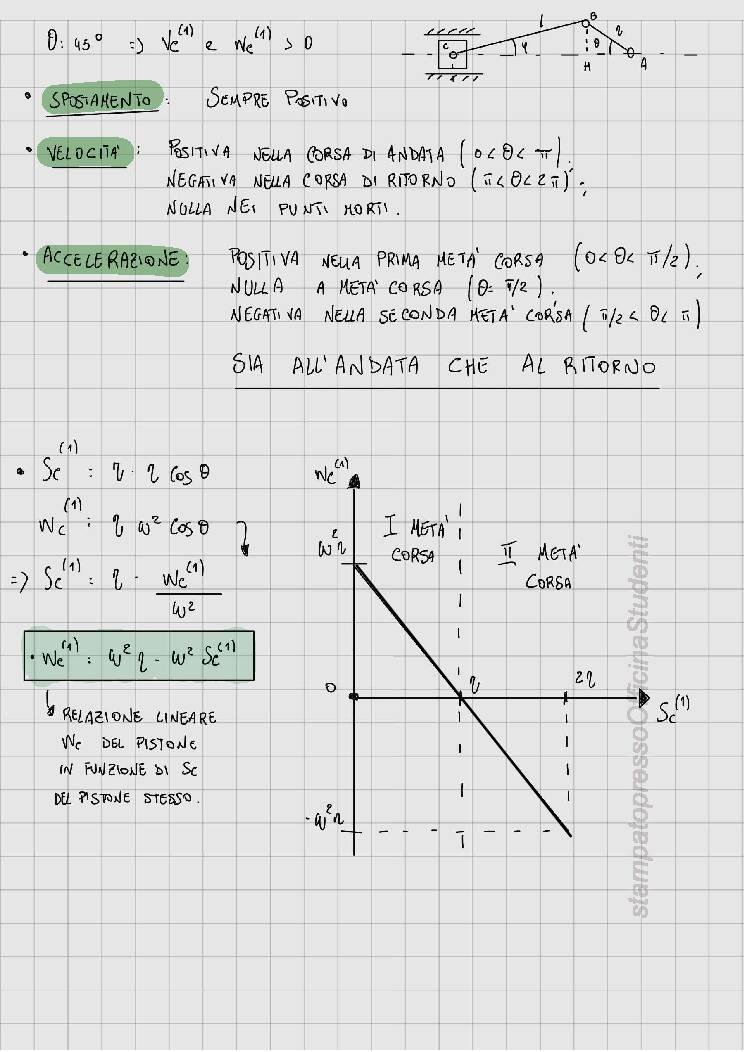 θ = 45° => Vc⁽¹⁾ e Wc⁽¹⁾ > 0
C l B r φ θ H A
• SPOSTAMENTO: SEMPRE POSITIVO
• VELOCITA': POSITIVA NELLA CORSA DI ANDATA (0 < θ < π);
NEGATIVA NELLA CORSA DI RITORNO (π < θ < 2π);
NULLA NEI PUNTI MORTI.
• ACCELERAZIONE: POSITIVA NELLA PRIMA META' CORSA (0 < θ < π/2);
NULLA A META' CORSA (θ = π/2).
NEGATIVA NELLA SECONDA META' CORSA (π/2 < θ < π)
SIA ALL'ANDATA CHE AL RITORNO
• Sc⁽¹⁾ = r - r cos θ
Wc⁽¹⁾ = r ω² cos θ
=> Sc⁽¹⁾ = r - Wc⁽¹⁾/ω²
• Wc⁽¹⁾ = ω² r - ω² Sc⁽¹⁾
RELAZIONE LINEARE
Wc DEL PISTONE
IN FUNZIONE DI Sc
DEL PISTONE STESSO.
Wc⁽¹⁾
ω² r
I META'
CORSA
II META'
CORSA
0
r
2r
Sc⁽¹⁾
-ω² r
stampatopressoOfficinaStudenti